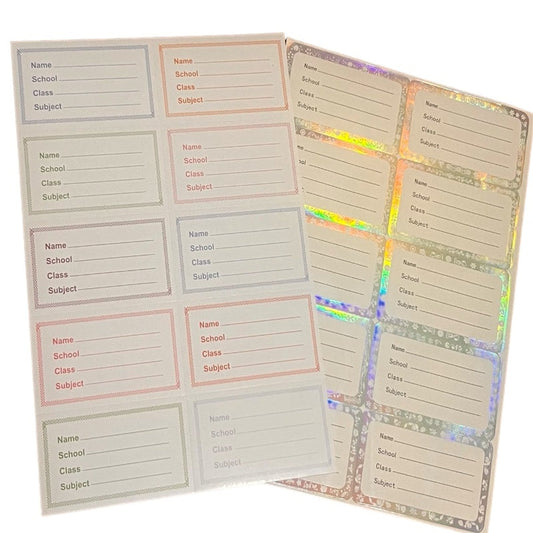 Name
School
Class
Subject
Name
School
Class
Subject
Name
School
Class
Subject
Name
School
Class
Subject
Name
School
Class
Subject
Name
School
Class
Subject
Name
School
Class
Subject
Name
School
Class
Subject
Name
School
Class
Subject
Name
School
Class
Subject
Name
School
Class
Subject
Name
School
Class
Subject
Name
School
Class
Subject
Name
School
Class
Subject
Name
School
Class
Subject
Name
School
Class
Subject